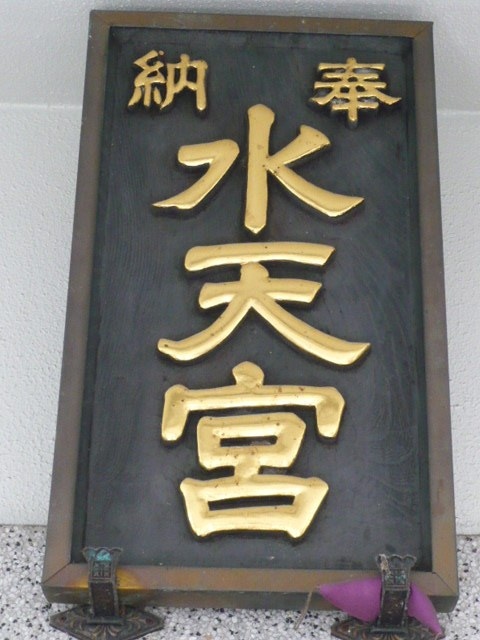 奉納
水天宮